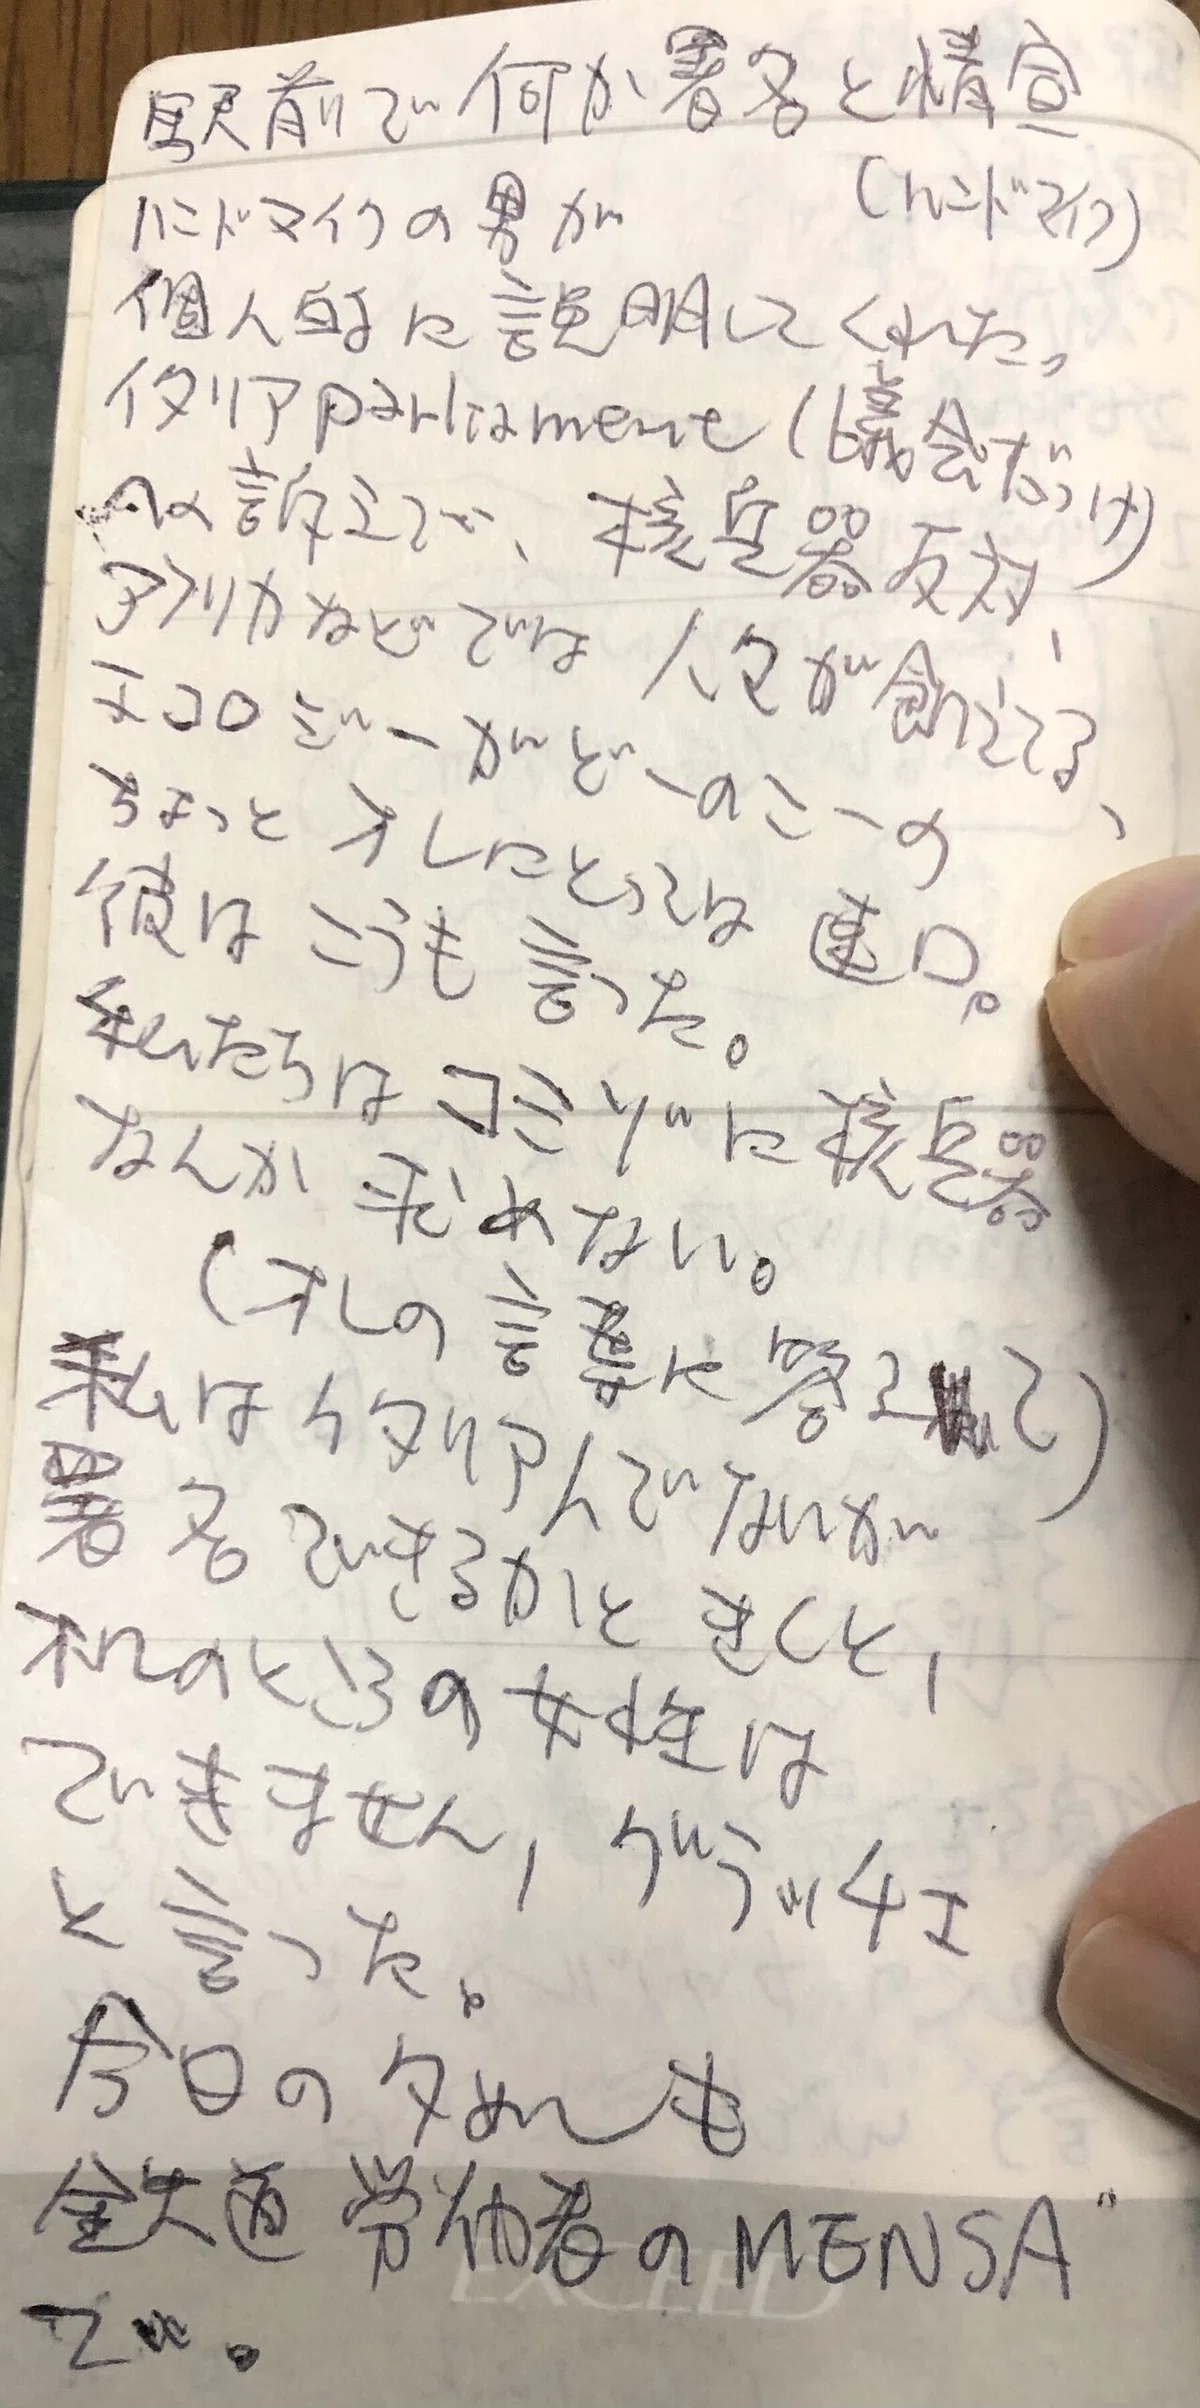 駅前で何か署名と情宣
(ハンドマイク)
ハンドマイクの男が
個人的に説明してくれた,
イタリアparliament (議会だっけ)
への訴えで、核兵器反対,
アフリカなどでは人々が飢えてる、
エコロジーがどーのこーの
ちょっとオレにとっては速口。
彼はこうも言った。
私たちはコミゾに核兵器
なんか求めない。
(オレの言葉に答えて)
私はイタリア人でないが
署名できるかときくと,
オレのところの女性は
できません, グラッチェ
と言った。
今日の夕めしも
鉄道労働者のMENSA"
で。
EXCEED